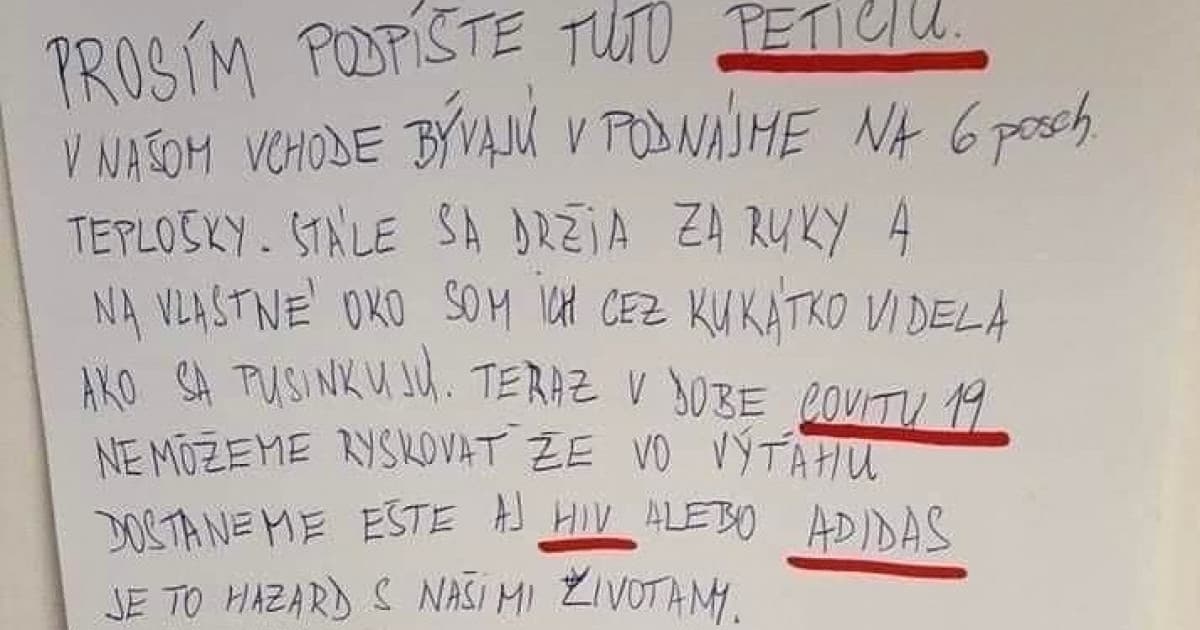 PROSÍM PODPÍŠTE TÚTO PETÍCIU.
V NAŠOM VCHODE BÝVAJÚ V PODNÁJME NA 6 posch.
TEPLOŠKY. STÁLE SA DRŽIA ZA RUKY A
NA VLASTNÉ OKO SOM ICH CEZ KUKÁTKO VIDELA
AKO SA PUSINKUJÚ. TERAZ V DOBE COVITU 19
NEMÔŽEME RYSKOVAŤ ŽE VO VÝŤAHU
DOSTANEME EŠTE AJ HIV ALEBO ADIDAS
JE TO HAZARD S NAŠIMI ŽIVOTAMY.